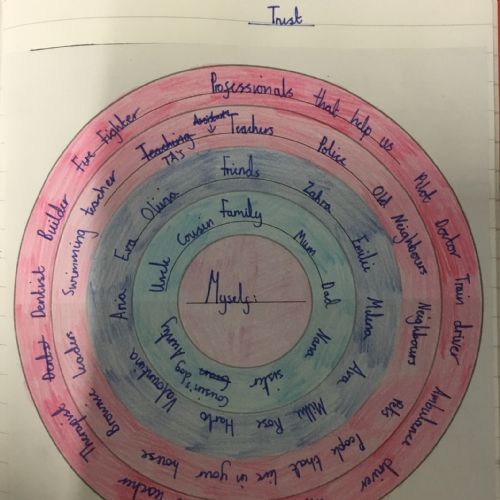 Trust
Professionals that help us
Pilot
Doctor
Train driver
Ambulance driver
Fire Fighter
Builder
Dentist
Therapist
Assistants
Teaching Teachers
TA's
Police
Old Neighbours
Neighbours
Pets
People that live in your house
Swimming teacher
Brownie leaders
Friends
Zahra
Emilie
Milena
Ava
Rose
Millie
Harlo
Valentina
Aria
Eva
Olivia
Family
Mum
Dad
Nana
sister
Cousin's dog
Aunty
Uncle
Cousin
Myself: